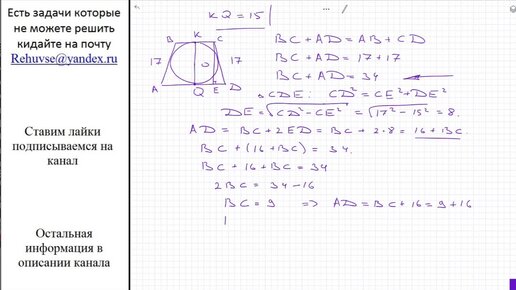 Есть задачи которые
не можете решить
кидайте на почту
Rehuvse@yandex.ru
Ставим лайки
подписываемся на
канал
Остальная
информация в
описании канала
KQ = 15
B K C
17 O 17
A Q E D
BC + AD = AB + CD
BC + AD = 17 + 17
BC + AD = 34
△CDE: CD² = CE² + DE²
DE = √CD² − CE² = √17² − 15² = 8.
AD = BC + 2ED = BC + 2·8 = 16 + BC.
BC + (16 + BC) = 34.
BC + 16 + BC = 34
2BC = 34 − 16
BC = 9 ⇒ AD = BC + 16 = 9 + 16